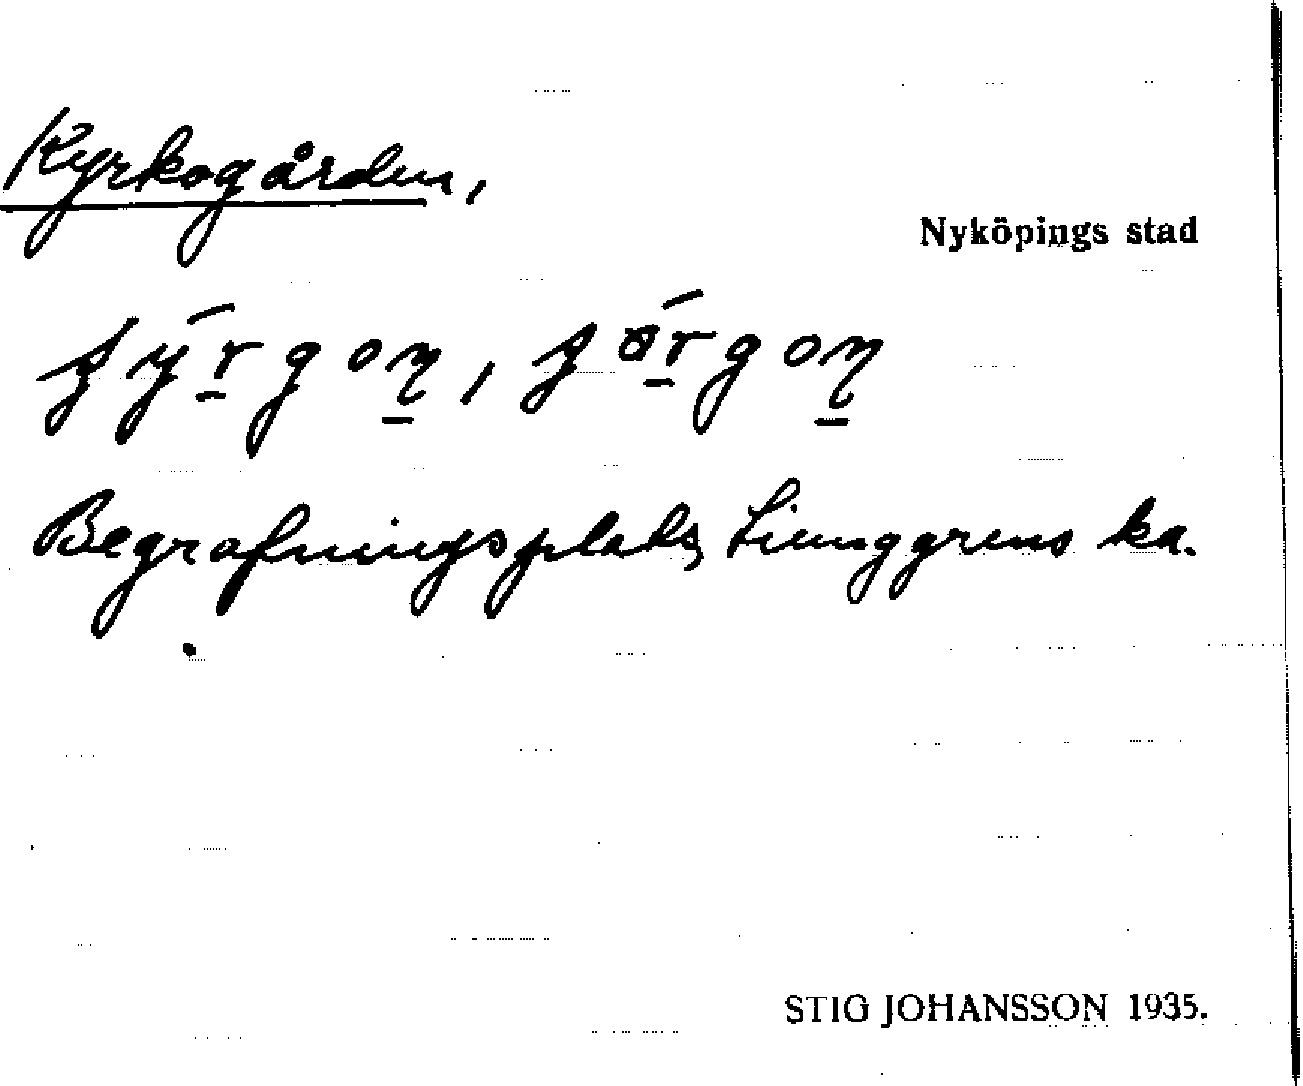 Kyrkogården,
Nyköpings stad
Begrafningsplats, Liunggrens ka.
STIG JOHANSSON 1935.